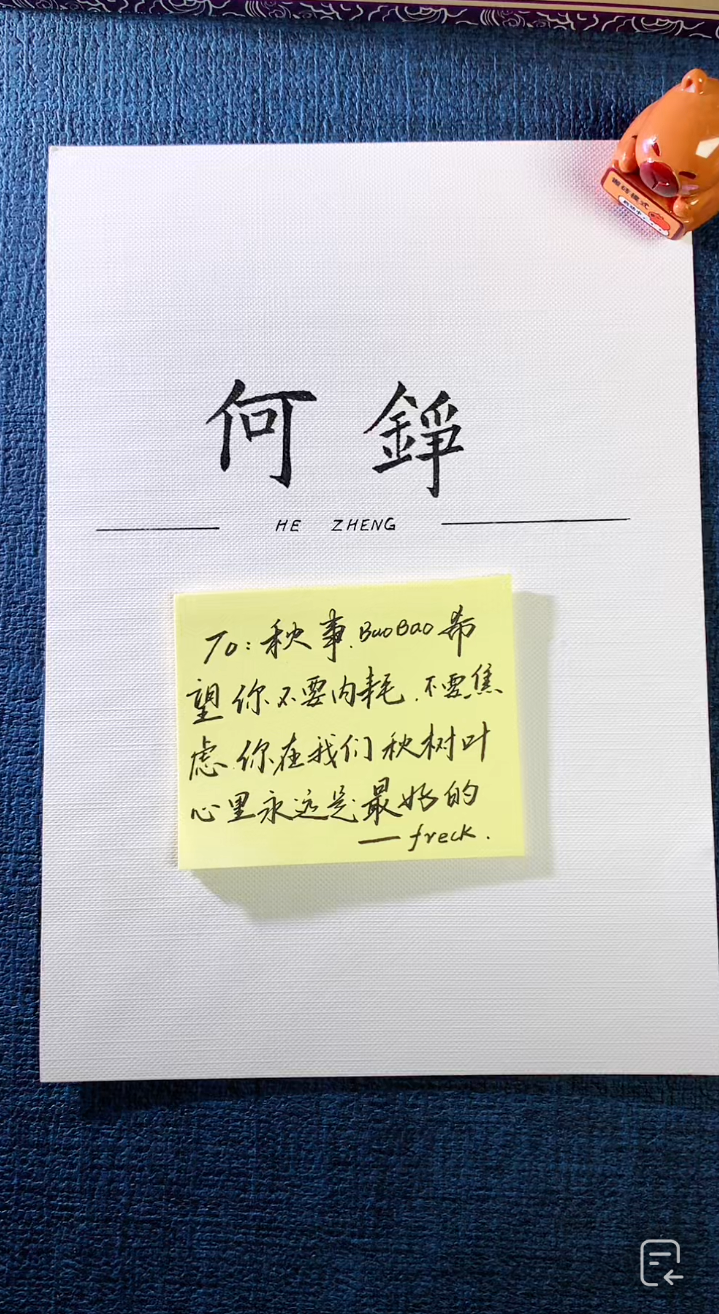 何 錚
HE ZHENG
To: 秋事.BaoBao 希
望你不要内耗.不要焦
虑.你在我们秋树叶
心里永远是最好的
— freck.